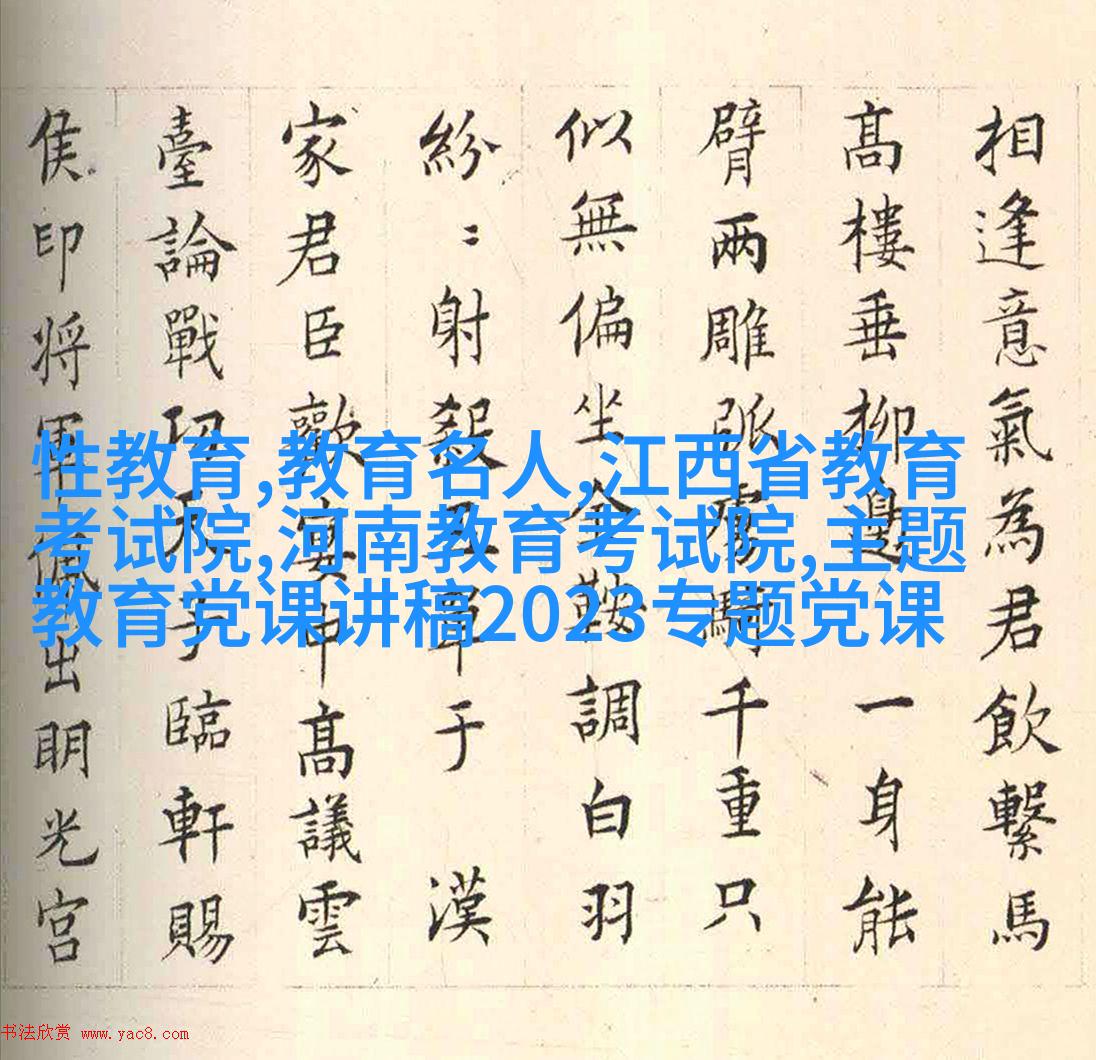 相逢意氣為君飲繫馬
髙樓垂柳邊一身能
臂兩雕弧虜騎千重只
似無偏坐金鞍調白羽
紛〻射殺五單于 漢
家君臣歡宴中髙議雲
臺論戰功天子臨軒賜
侯印将軍佩出明光宮
性教育,教育名人,江西省教育
考试院,河南教育考试院,主题
教育党课讲稿2023专题党课
书法欣赏 www.yac8.com